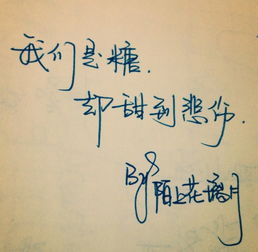 我们是糖.
却甜到悲伤.
By 陌上花漪月